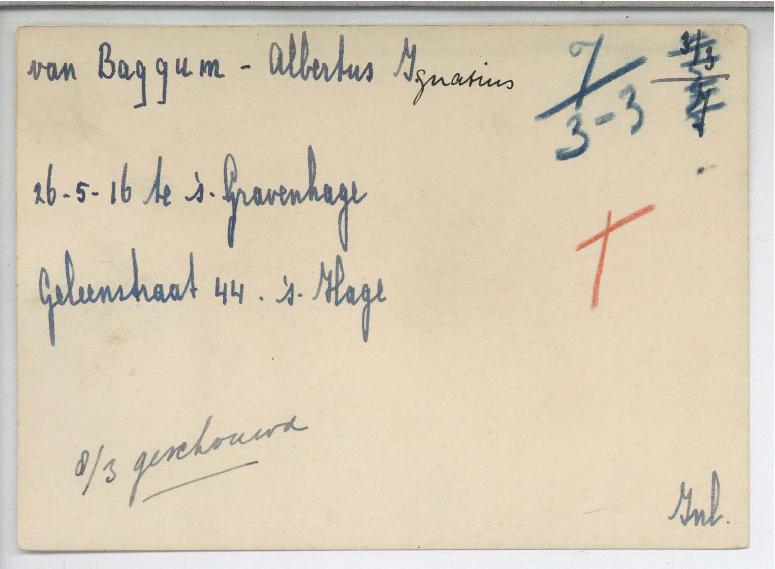 van Baggum - Albertus Ignatius
7/3-3
26-5-16 te 's-Gravenhage
Geleenstraat 44. 's-Hage
8/3 geschouwd
Inl.